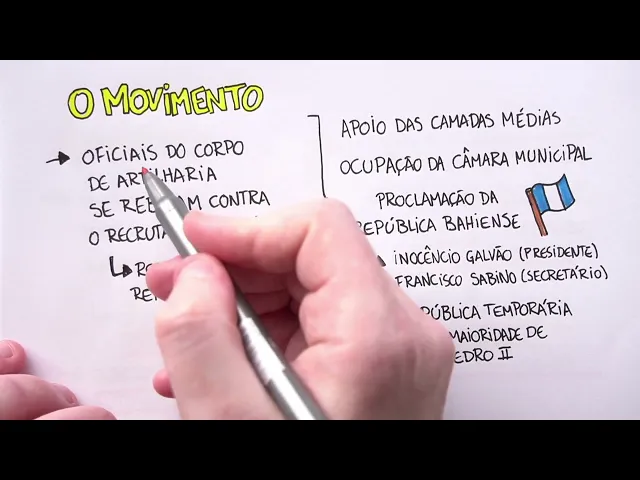 O MOVIMENTO
→ OFICIAIS DO CORPO
DE ARTILHARIA
SE REBELAM CONTRA
O
APOIO DAS CAMADAS MÉDIAS
OCUPAÇÃO DA CÂMARA MUNICIPAL
PROCLAMAÇÃO DA
REPÚBLICA BAHIENSE
INOCÊNCIO GALVÃO (PRESIDENTE)
FRANCISCO SABINO (SECRETÁRIO)
REPÚBLICA TEMPORÁRIA
MAIORIDADE DE
PEDRO II